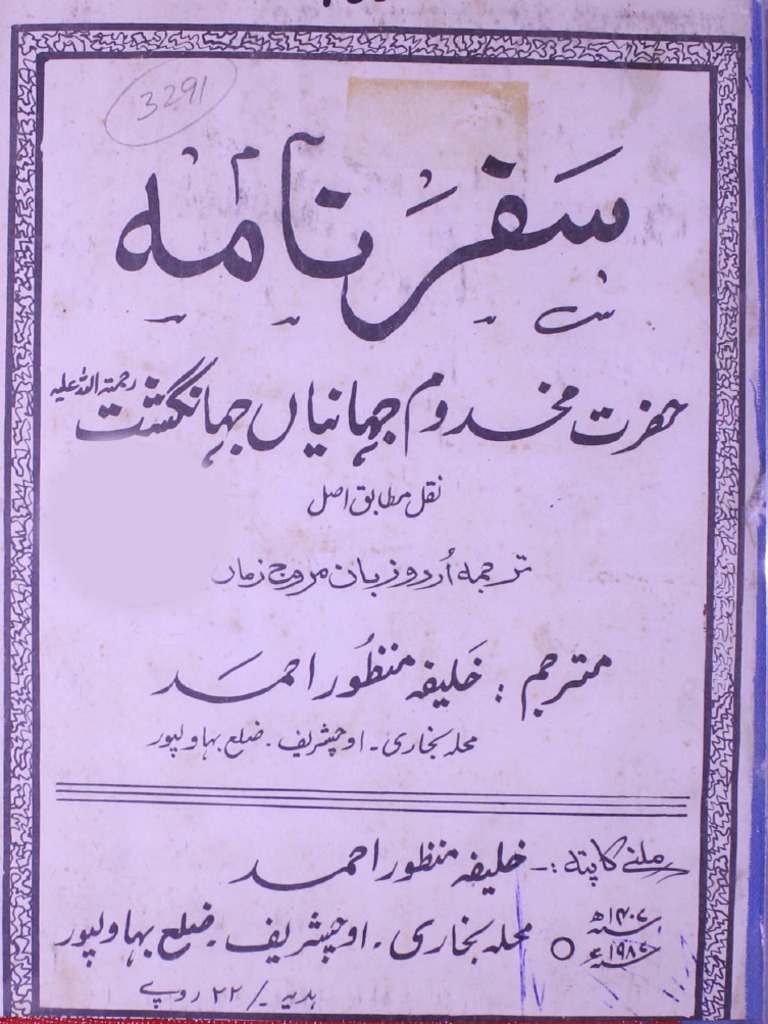 3291
سفر نامہ
حضرت مخدوم جہانیاں جہانگشت رحمتہ اللہ علیہ
نقل مطابق اصل
ترجمہ اُردو زبان مروج زماں
مترجم : خلیفہ منظُور احمد
محلہ بخاری ۔ اوچشریف ۔ ضلع بہاولپور
ملنے کا پتہ :۔ خلیفہ منظور احمد
۱۴۰۷ھ
محلہ بخاری ۔ اوچشریف ۔ ضلع بہاولپور
۱۹۸۷ء
ہدیہ /۔ ۲۲ روپے